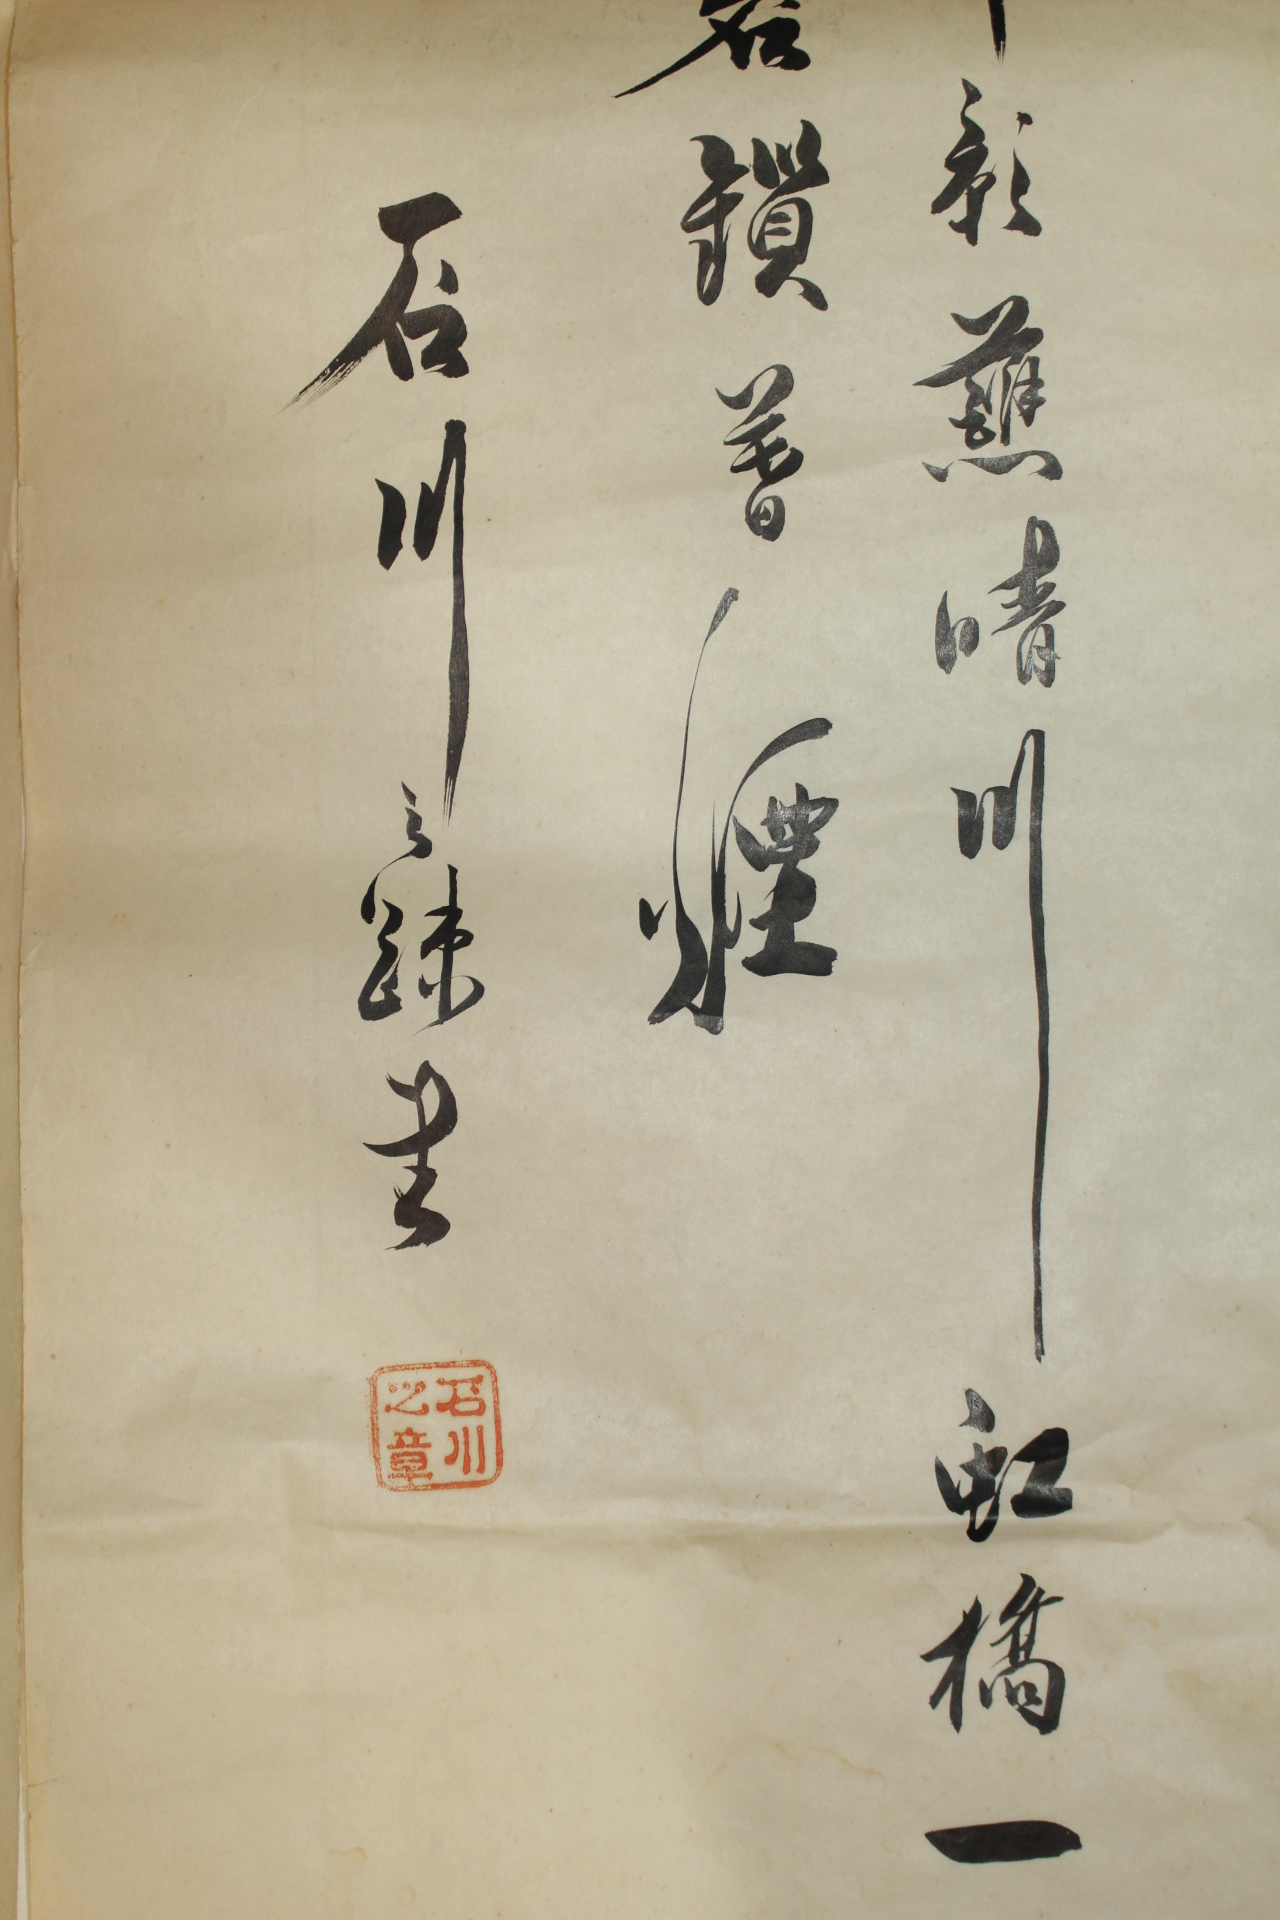 影蘸晴川虹橋一
若鎖暮煙
石川之疎書
石川之章